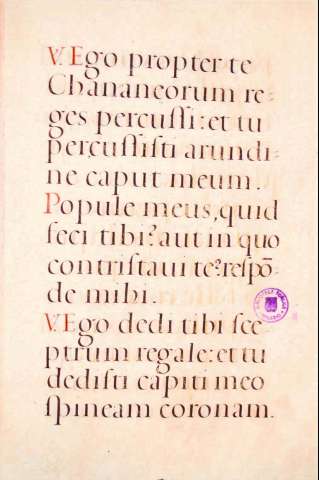 V. Ego propter te
Chananeorum re=
ges percuſſi: et tu
percuſſiſti arundi=
ne caput meum.
Popule meus, quid
feci tibi? aut in quo
contriſtavi te? reſpō=
de mihi.
V. Ego dedi tibi ſce=
ptrum regale: et tu
dediſti capiti meo
ſpineam coronam.